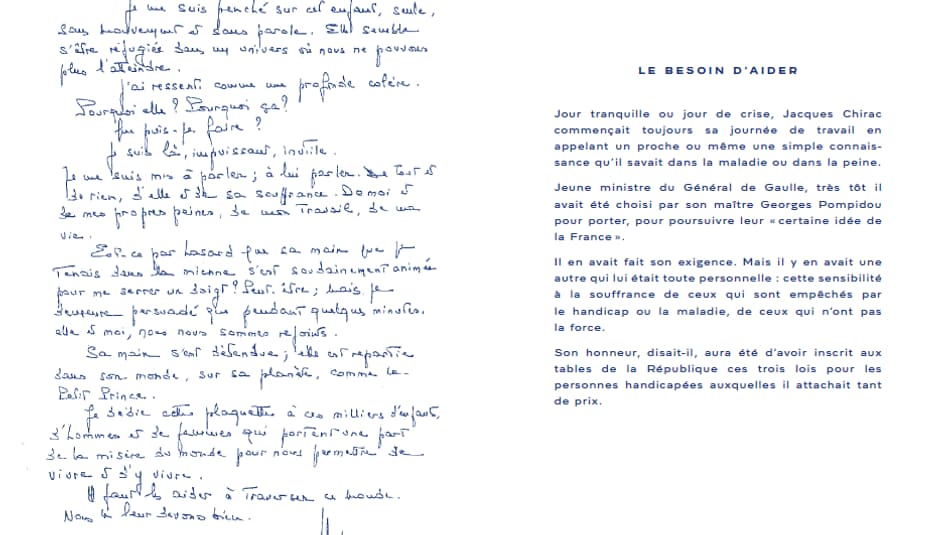 Je me suis penché sur cet enfant, seule,
sans mouvement et sans parole. Elle semble
s'être réfugiée dans un univers où nous ne pouvons
plus l'atteindre.
J'ai ressenti comme une profonde colère.
Pourquoi elle ? Pourquoi ça ?
Que puis-je faire ?
Je suis là, impuissant, inutile.
Je me suis mis à parler ; à lui parler. De tout et
de rien, d'elle et de sa souffrance. De moi et
de mes propres peines, de mon travail, de ma
vie.
Est-ce par hasard que sa main que je
tenais dans la mienne s'est soudainement animée
pour me serrer un doigt ? Peut-être ; mais je
demeure persuadé que pendant quelques minutes,
elle et moi, nous nous sommes rejoins.
Sa main s'est détendue ; elle est repartie
dans son monde, sur sa planète, comme le
Petit Prince.
Je dédie cette plaquette à ces milliers d'enfants,
d'hommes et de femmes qui portent une part
de la misère du monde pour nous permettre de
vivre et d'y vivre.
Il faut les aider à traverser ce monde.
Nous le leur devons bien.
LE BESOIN D'AIDER
Jour tranquille ou jour de crise, Jacques Chirac
commençait toujours sa journée de travail en
appelant un proche ou même une simple connais-
sance qu'il savait dans la maladie ou dans la peine.
Jeune ministre du Général de Gaulle, très tôt il
avait été choisi par son maître Georges Pompidou
pour porter, pour poursuivre leur « certaine idée de
la France ».
Il en avait fait son exigence. Mais il y en avait une
autre qui lui était toute personnelle : cette sensibilité
à la souffrance de ceux qui sont empêchés par
le handicap ou la maladie, de ceux qui n'ont pas
la force.
Son honneur, disait-il, aura été d'avoir inscrit aux
tables de la République ces trois lois pour les
personnes handicapées auxquelles il attachait tant
de prix.